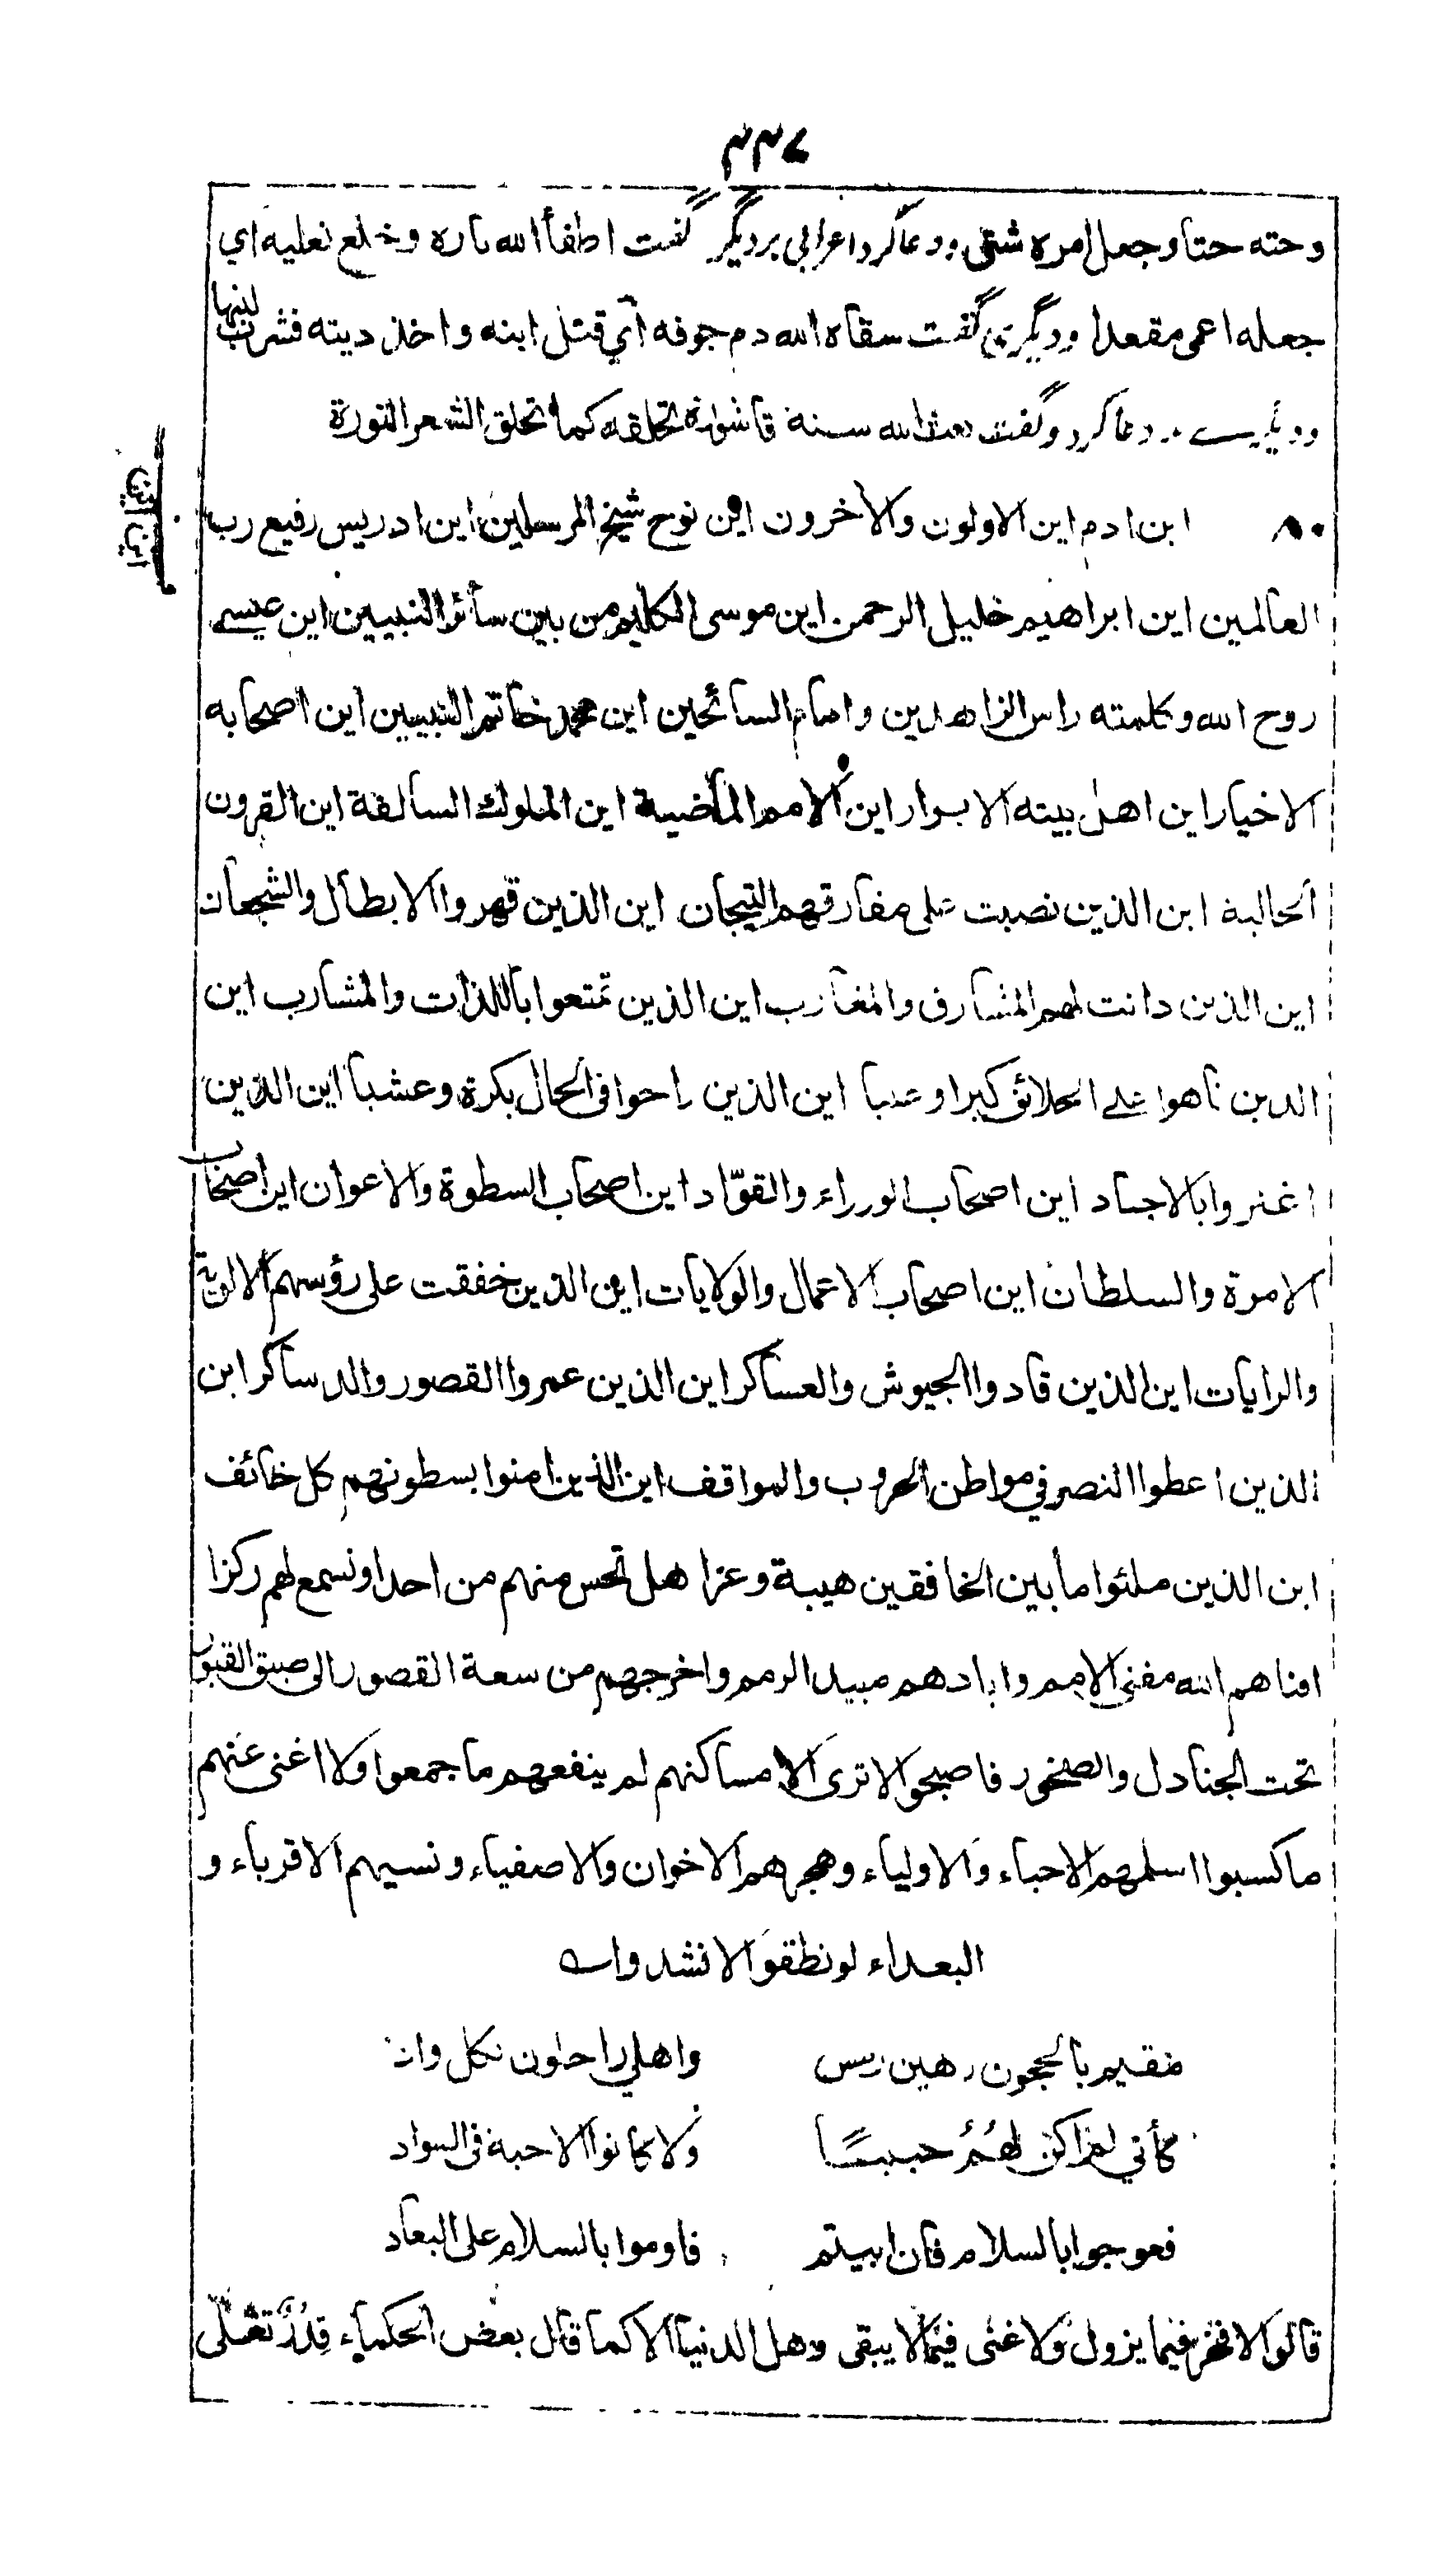 ٣٣٧
وحته حتا وجعل امره شتى ودعا كرد اعرابى بر ديگر گفت اطفأ الله ناره وخلع نعليه اي
جعله اعمى مقعدا وديگرى گفت سقاه الله دم جوفه اي قتل ابنه واخذ ديته فشرب لبنها
دعا كرد وگفت بعث الله سنة قاشورة تحلقه كما تحلق الشعر النورة
اين اين
٨٠ اين ادم اين الاولون والاخرون اين نوح شيخ المرسلين اين ادريس رفيع رب
العالمين اين ابراهيم خليل الرحمن اين موسى الكليم من بين سائر النبيين اين عيسى
روح الله وكلمته راس الزاهدين وامام السائحين اين محمد خاتم النبيين اين اصحابه
الاخيار اين اهل بيته الابرار اين الامم الماضية اين الملوك السالفة اين القرون
الخالية اين الذين نصبت على مفارقهم التيجان اين الذين قهروا الابطال والشجعان
اين الذين دانت لهم المشارق والمغارب اين الذين تمتعوا باللذات والمشارب اين
الذين تاهوا على الخلائق كبرا وعتيا اين الذين راحوا في الحال بكرة وعشيا اين الذين
اغتروا بالاجناد اين اصحاب الوزراء والقوّاد اين اصحاب السطوة والاعوان اين اصحاب
الامرة والسلطان اين اصحاب الاعمال والولايات اين الذين خفقت على رؤسهم الالوية
والرايات اين الذين قادوا الجيوش والعساكر اين الذين عمروا القصور والدساكر اين
الذين اعطوا النصر في مواطن الحروب والمواقف اين الذين امنوا بسطوتهم كل خائف
اين الذين ملئوا ما بين الخافقين هيبة وعزا هل تحس منهم من احد او تسمع لهم ركزا
افناهم الله مفنى الامم وابادهم مبيد الرمم واخرجهم من سعة القصور الى ضيق القبور
تحت الجنادل والصخور فاصبحوا لا ترى الا مساكنهم لم ينفعهم ما جمعوا ولا اغنى عنهم
ما كسبوا اسلمهم الاحباء والاولياء وهجرهم الاخوان والاصفياء ونسيهم الاقرباء و
البعداء لو نطقوا لانشدوا
مقيم بالحجون رهين رمس واهلي راحلون بكل واد
كأني لم اكن لهُمُ حبيبًا ولا كانوا الاحبة في السواد
فعوجوا بالسلام فان ابيتم فاوموا بالسلام على البعاد
قالوا لا فخر فيما يزول ولا غنى فيما لا يبقى وهل الدنيا الا كما قال بعض الحكماء قِدْرٌ تَغْلي